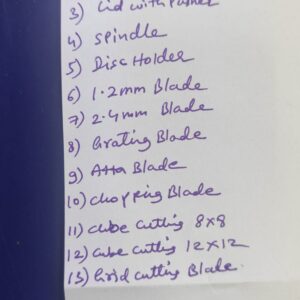 3) Lid with Pusher
4) Spindle
5) Disc Holder
6) 1.2mm Blade
7) 2.4mm Blade
8) Grating Blade
9) Atta Blade
10) Chopping Blade
11) Cube Cutting 8x8
12) Cube Cutting 12x12
13) Grid Cutting Blade.